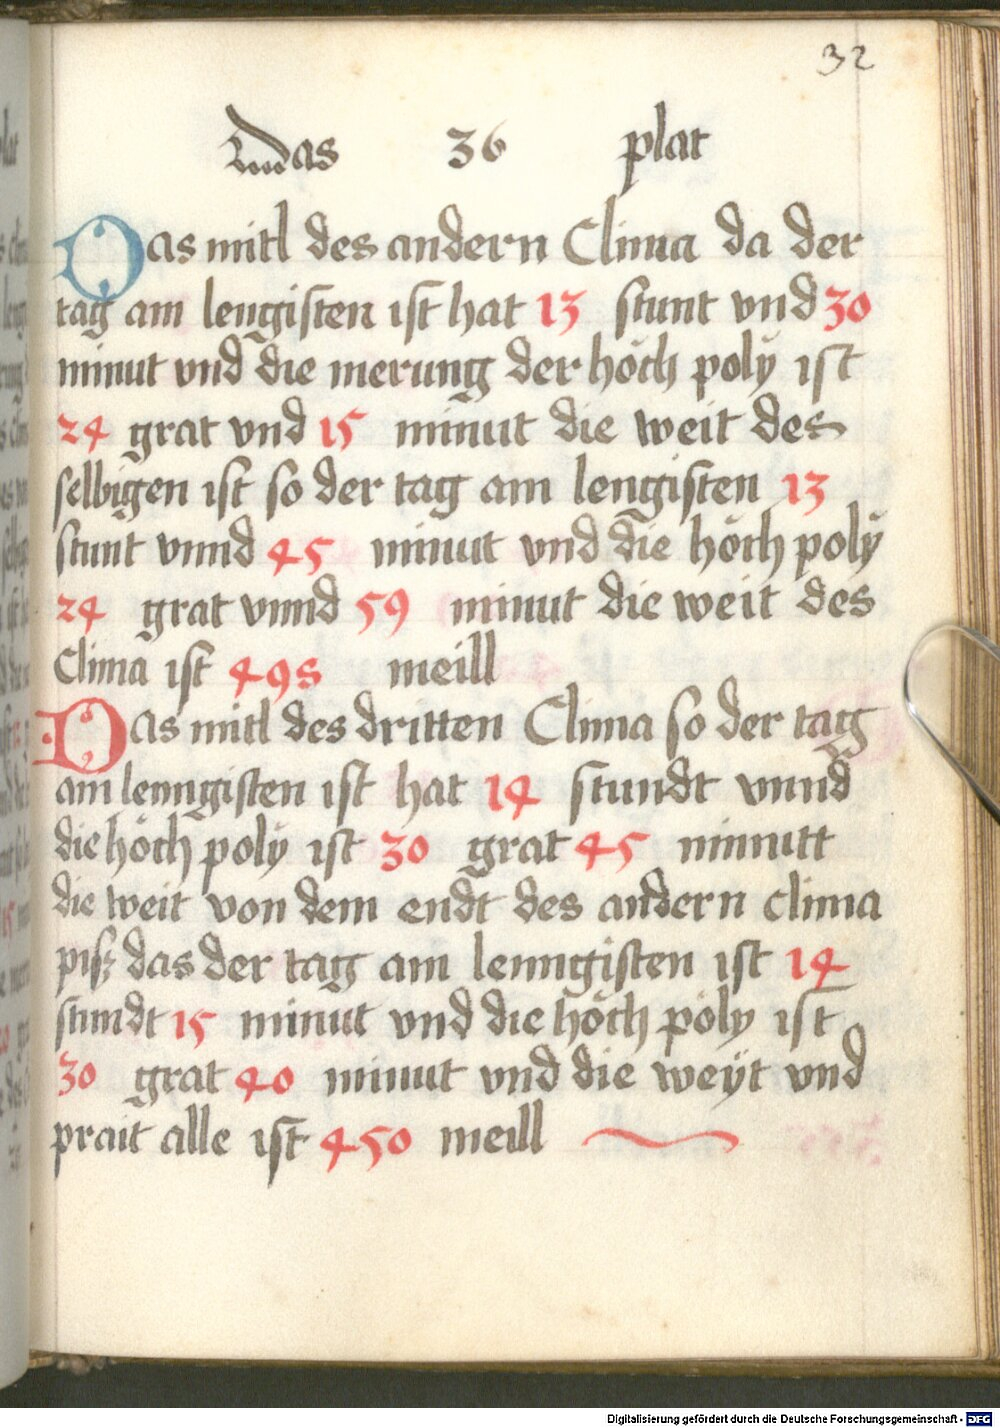 32
Das 36 plat
Das mitl des andern Clima da der
tag am lengisten ist hat 13 stunt vnd 30
minut vnd die merung der höch polÿ ist
24 grat vnd 15 minut die weit des
selbigen ist so der tag am lengisten 13
stunt vnnd 45 minut vnd die höch polÿ
24 grat vnnd 59 minut die weit des
Clima ist 49s meill
Das mitl des dritten Clima so der tag
am lenngisten ist hat 14 stundt vnnd
die höch polÿ ist 30 grat 45 minutt
die weit von dem endt des andern clima
piß das der tag am lenngisten ist 14
stundt 15 minut vnd die höch polÿ ist
30 grat 40 minut vnd die weÿt vnd
prait alle ist 450 meill
Digitalisierung gefördert durch die Deutsche Forschungsgemeinschaft - DFG